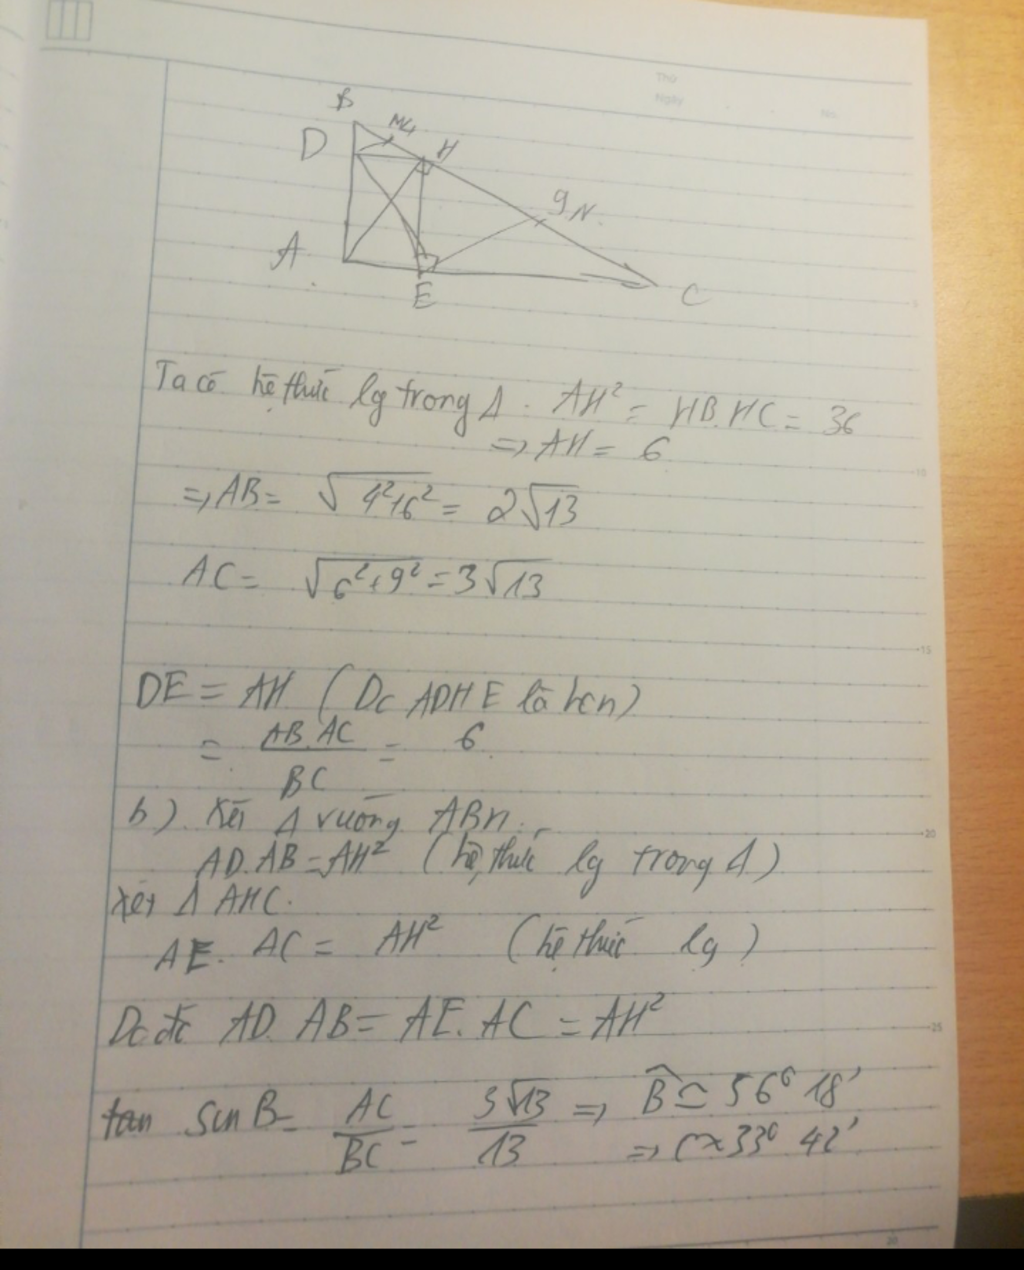 Thứ
Ngày
No.
B
M4
D
H
9
N
A
E
C
Ta có hệ thức lg trong Δ. AH² = HB.HC = 36
=> AH = 6
=> AB = √4²+6² = 2√13
AC = √6²+9² = 3√13
DE = AH (Do ADHE là hcn)
= AB.AC/BC = 6
b) Xét Δ vuông ABH:
AD.AB = AH² (hệ thức lg trong Δ)
Xét Δ AHC.
AE. AC = AH² (hệ thức lg)
Do đó AD. AB = AE. AC = AH²
tan Sin B = AC/BC = 3√13/13 => B̂ ≃ 56° 18'
=> C ≈ 33° 42'